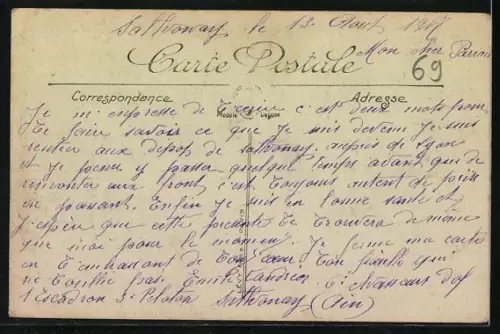 Sathonay le 13 Aout 1917
Mon cher Parrain
Carte Postale
69
Correspondance
Adresse
Je m'empresse de t'ecrire c'est deux mots pour
te faire savoir ce que je suis devenu Je suis
rentrer aux depot de Sathonay auprès de Lyon
et je pense y passer quelque temps avant que de
remonter aux front c'est toujours autent de pris
en passant. Enfin je suis en bonne santé et
J'espère que cette presente te trouvera de même
que moi pour le moment. Je ferme ma carte
en t'embrassant de tout cœur ton filleul qui
ne t'oublie pas. Emile
1 Escadron 3e Peloton Sathonay (Ain)